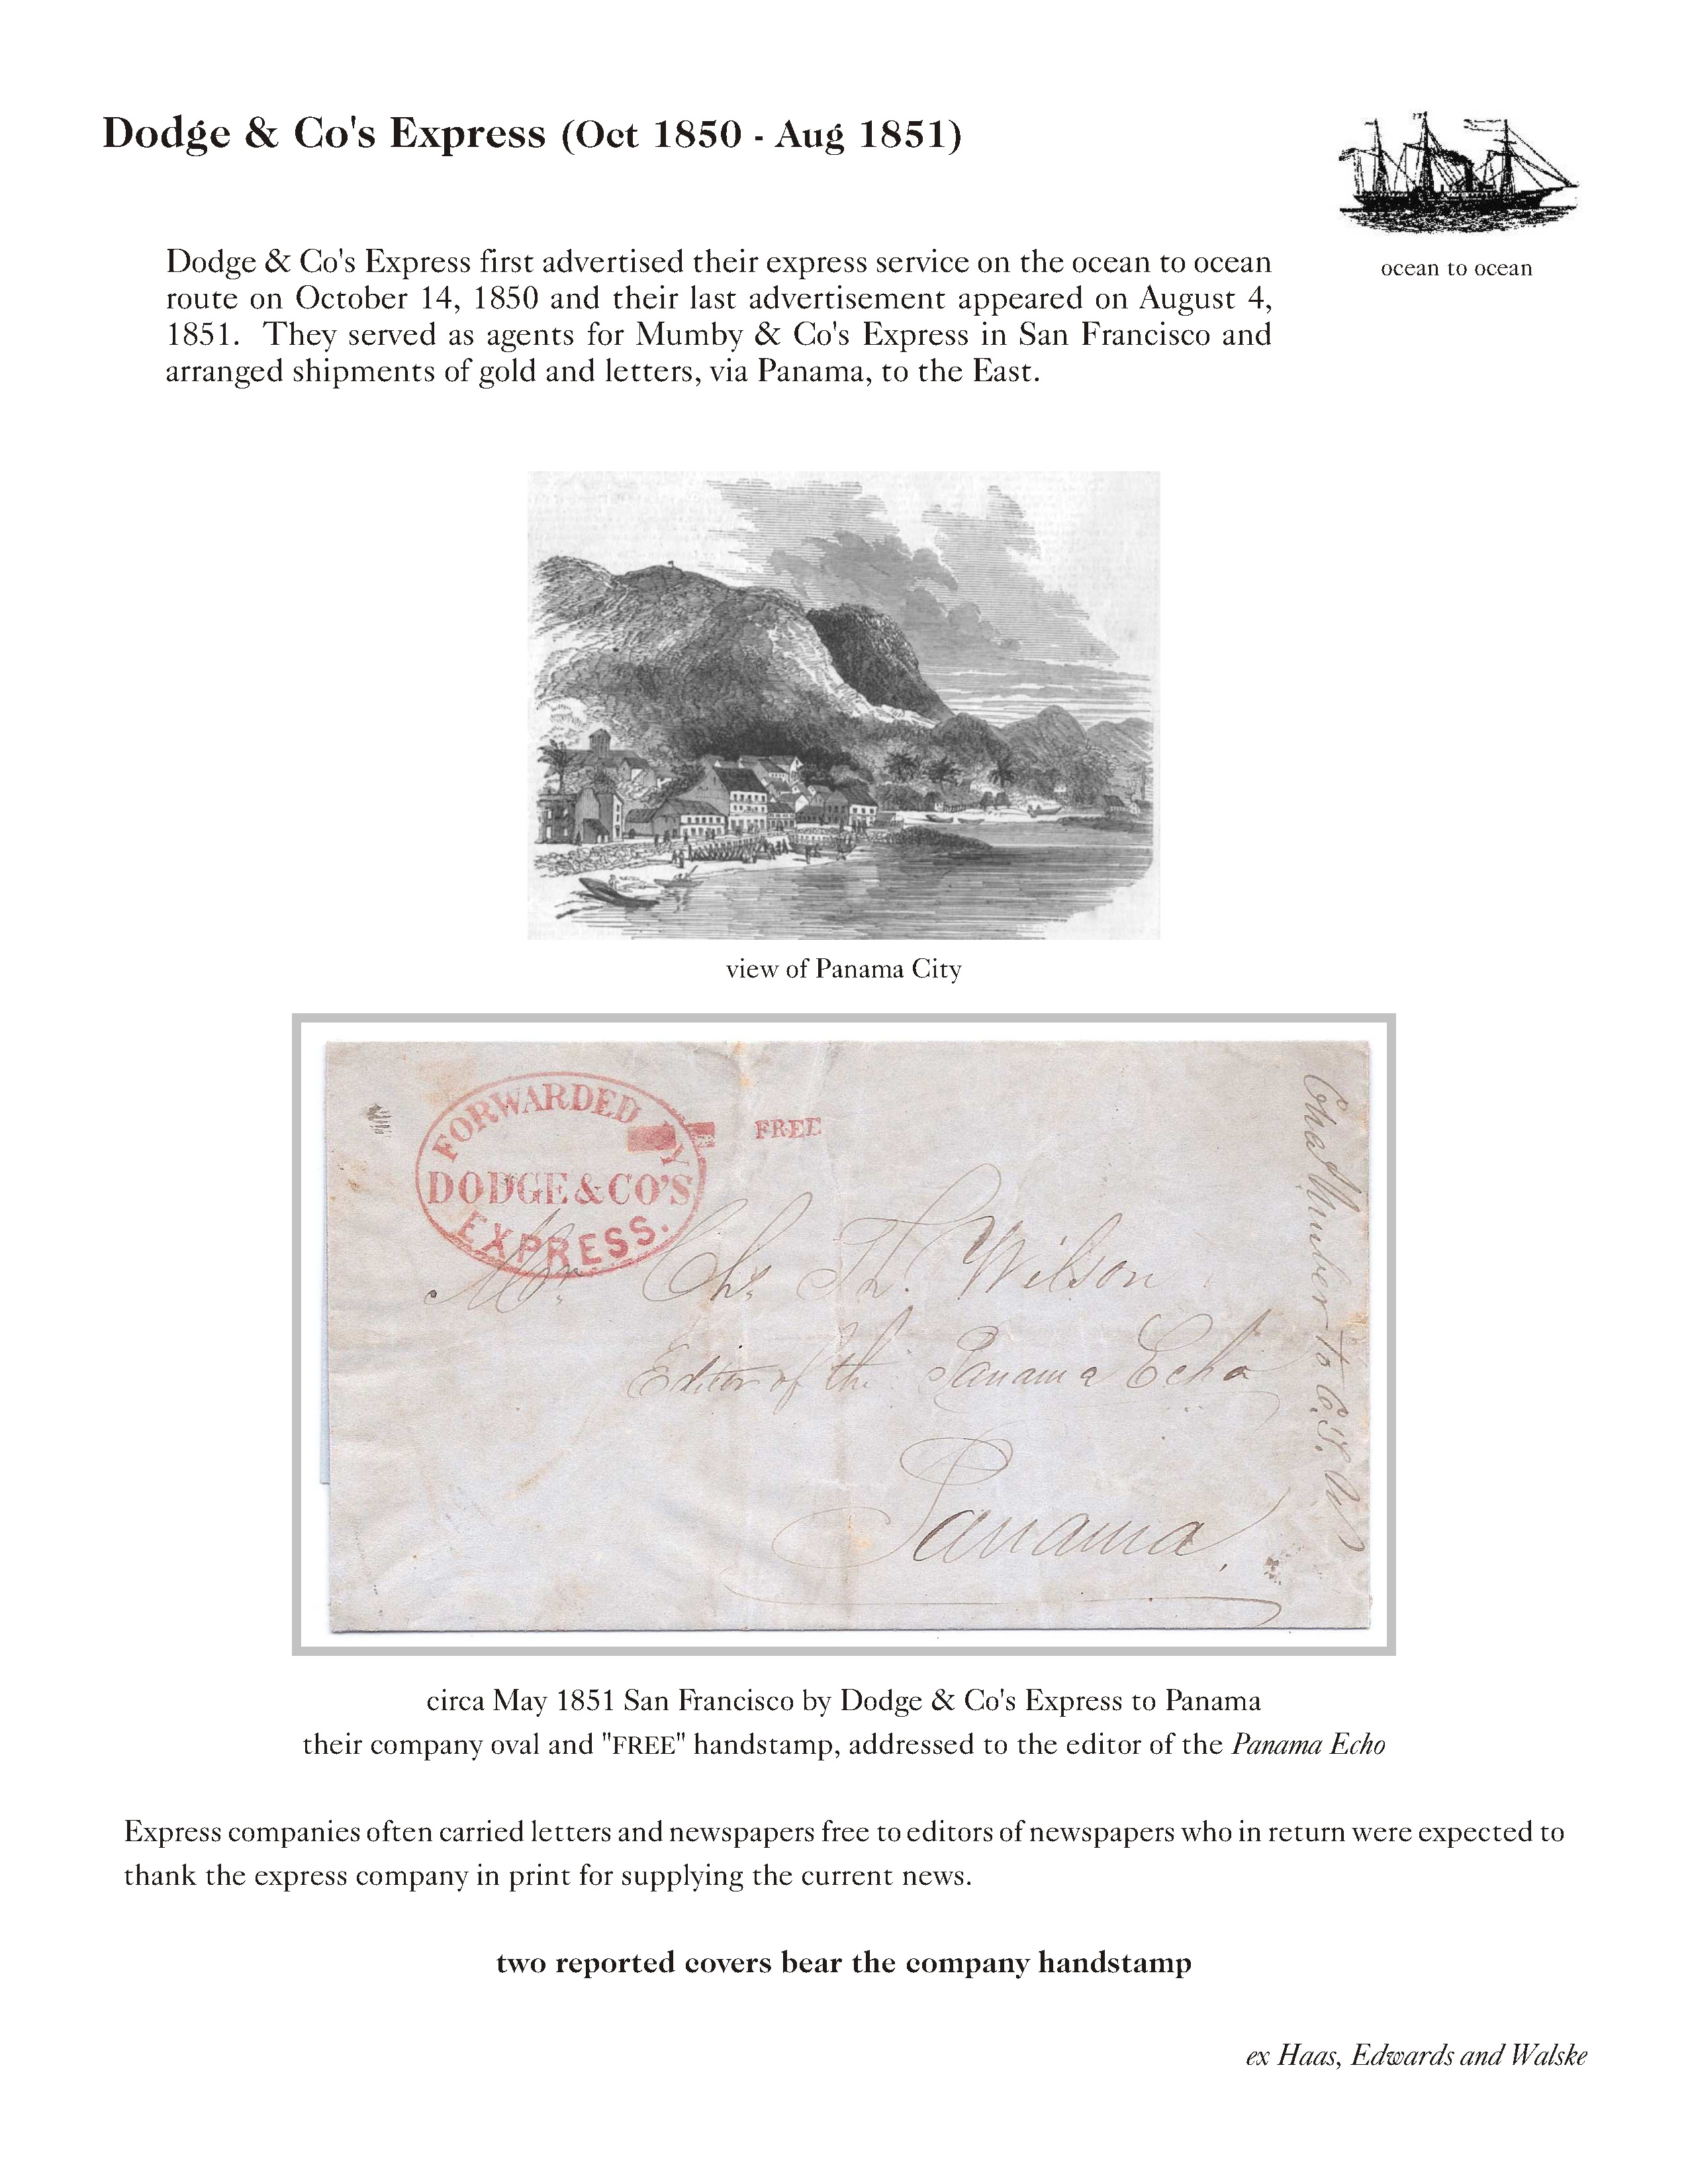 Dodge & Co's Express (Oct 1850 - Aug 1851)
ocean to ocean
Dodge & Co's Express first advertised their express service on the ocean to ocean
route on October 14, 1850 and their last advertisement appeared on August 4,
1851. They served as agents for Mumby & Co's Express in San Francisco and
arranged shipments of gold and letters, via Panama, to the East.
view of Panama City
FORWARDED BY
DODGE & CO'S
EXPRESS.
FREE
Mr. Chs. Th. Wilson
Editor of the Panama Echo
Panama
to
circa May 1851 San Francisco by Dodge & Co's Express to Panama
their company oval and "FREE" handstamp, addressed to the editor of the Panama Echo
Express companies often carried letters and newspapers free to editors of newspapers who in return were expected to
thank the express company in print for supplying the current news.
two reported covers bear the company handstamp
ex Haas, Edwards and Walske